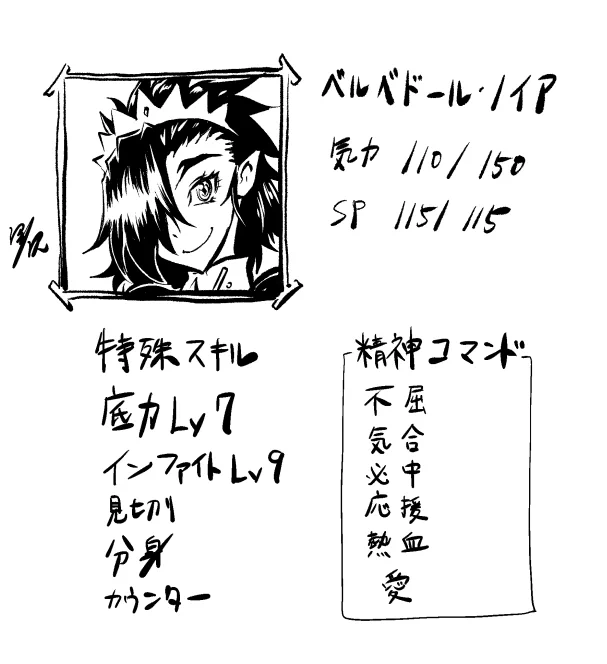 ベルベドール・ノイア
気力 110/150
SP 115/115
特殊スキル
底力Lv7
インファイトLv9
見切り
分身
カウンター
精神コマンド
不屈
気合
必中
応援
熱血
愛